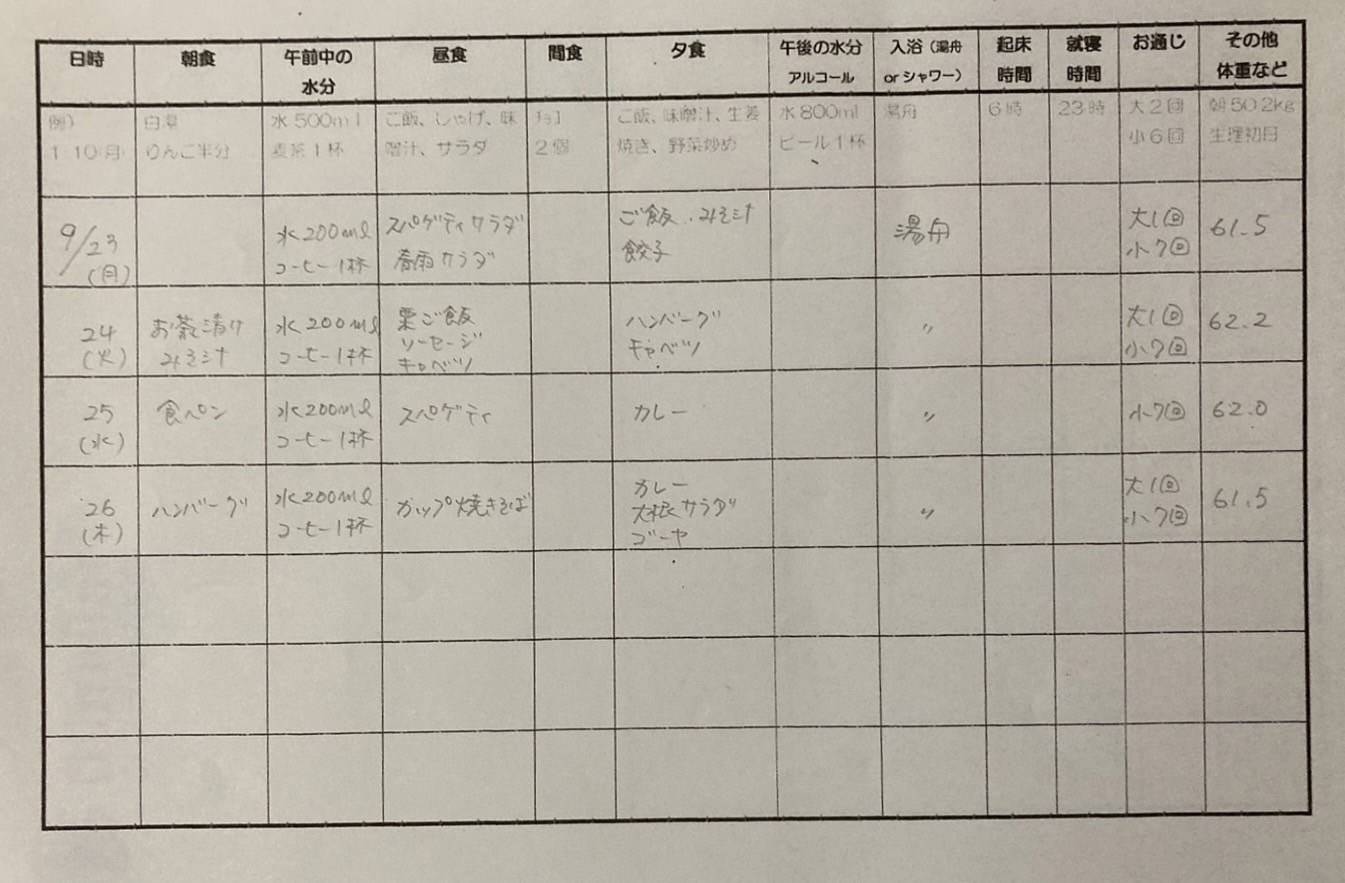 日時 朝食 午前中の水分 昼食 間食 夕食 午後の水分 アルコール 入浴（湯舟 or シャワー） 起床時間 就寝時間 お通じ その他 体重など
例） 白湯 水500ml ご飯、しゃけ、味 チョコ ご飯、味噌汁、生姜 水800ml 湯舟 6時 23時 大2回 朝50.2kg
1/10(月) りんご半分 麦茶1杯 噌汁、サラダ 2個 焼き、野菜炒め ビール1杯 小6回 生理初日
9/23 水200ml スパゲティサラダ ご飯、みそ汁 湯舟 大1回 61.5
(月) コーヒー1杯 春雨サラダ 餃子 小7回
24 お茶漬け 水200ml 栗ご飯 ハンバーグ 〃 大1回 62.2
(火) みそ汁 コーヒー1杯 ソーセージ キャベツ 小7回
キャベツ
25 食パン 水200ml スパゲティ カレー 〃 小7回 62.0
(水) コーヒー1杯
26 ハンバーグ 水200ml カップ焼きそば カレー 〃 大1回 61.5
(木) コーヒー1杯 大根サラダ 小7回
ゴーヤ